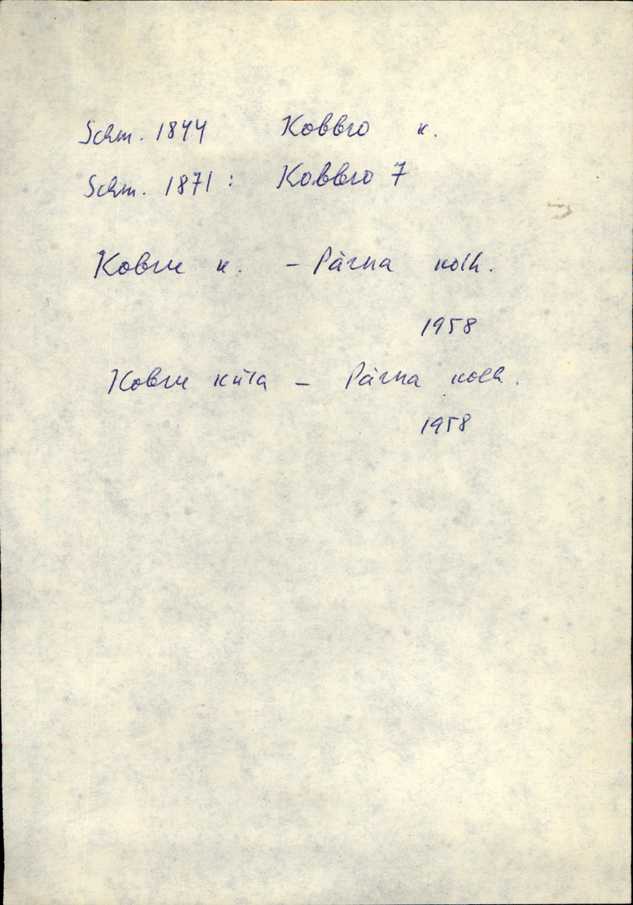 Schm. 1844 Kobbro k.
Schm. 1871: Kobbro 7
Kobru k. - Pärna kolh.
1958
Kobru küla - Pärna kolh.
1958